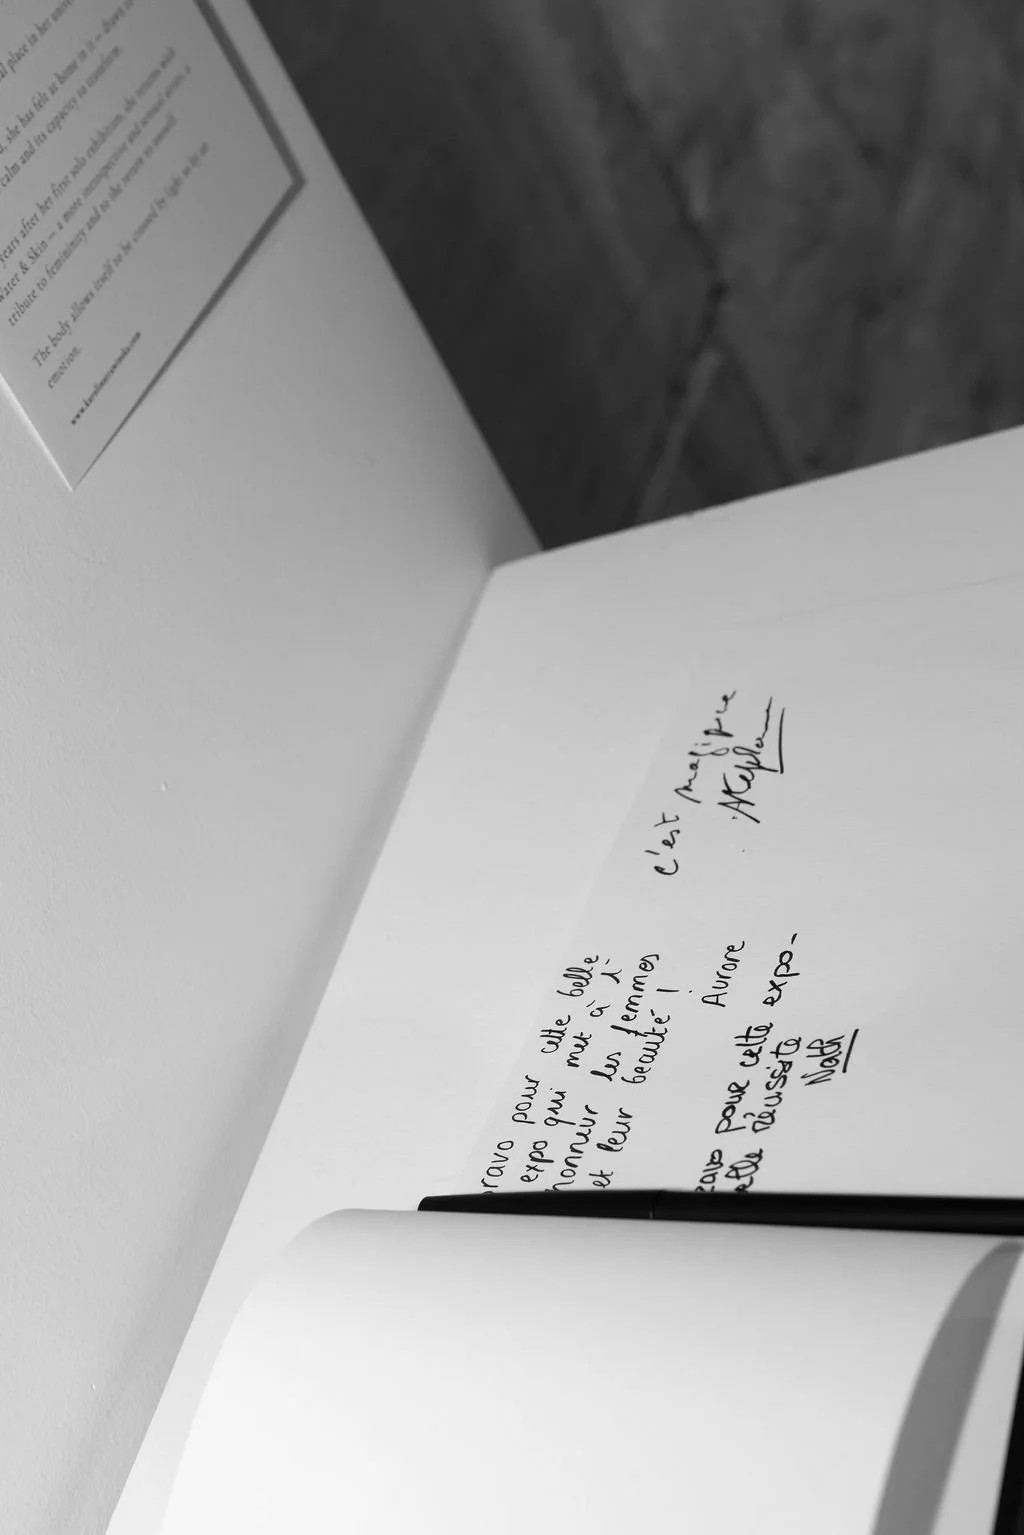 al place in her
she has felt at home in it — draws
calm and its capacity to transform.
years after her first solo exhibition, she returns with
Water & Skin — a more introspective and sensual series, a
tribute to femininity and to the
The body allows itself to be caused by light as by an
emotion.
c'est magique
ravo pour cette belle
expo qui met à l'
honneur les femmes
et leur beauté !
Aurore
ravo pour cette expo-
elle réussite
Nath